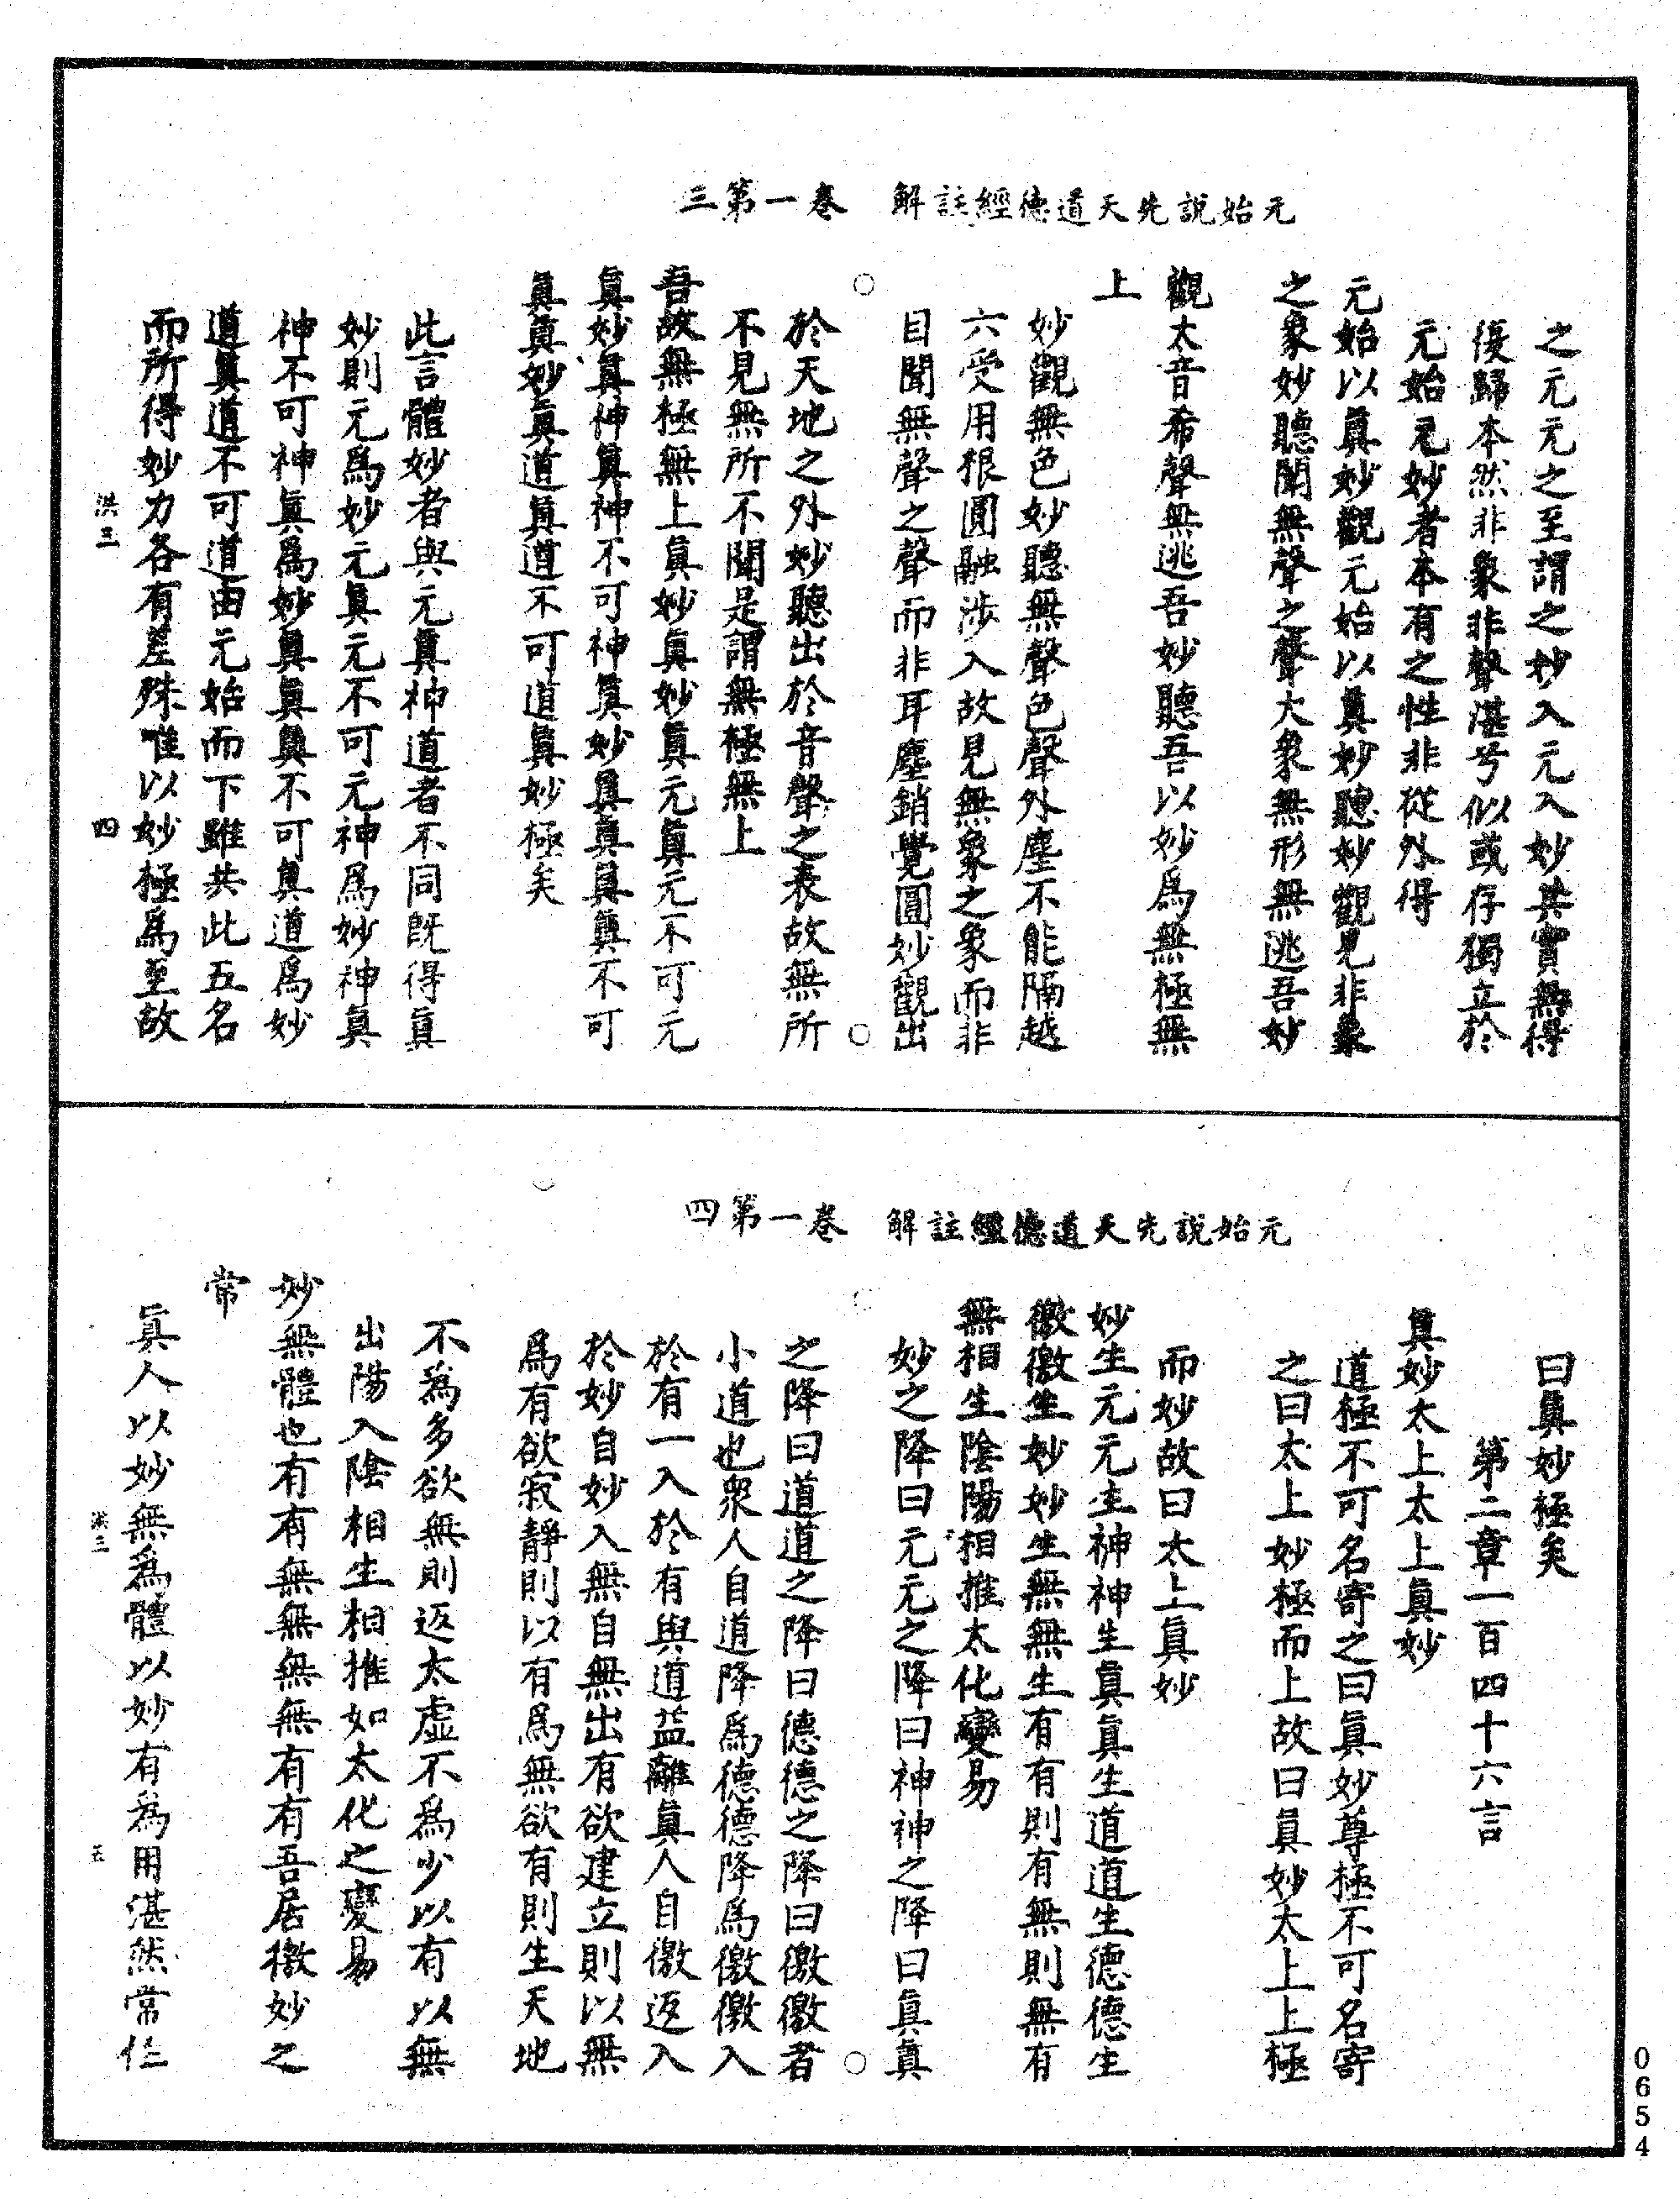 元始說先天道德經註解　卷一第三
之元元之至謂之妙入元入妙其實無得
復歸本然非象非聲湛兮似或存獨立於
元始元妙者本有之性非從外得
元始以眞妙觀元始以眞妙聽妙觀見非象
之象妙聽聞無聲之聲大象無形無逃吾妙
觀太音希聲無逃吾妙聽吾以妙爲無極無
上
妙觀無色妙聽無聲色聲外塵不能隔越
六受用根圓融涉入故見無象之象而非
目聞無聲之聲而非耳塵銷覺圓妙觀出
於天地之外妙聽出於音聲之表故無所
不見無所不聞是謂無極無上
吾故無極無上眞妙眞妙眞元眞元不可元
眞妙眞神眞神不可神眞妙眞眞眞眞不可
眞眞妙眞道眞道不可道眞妙極矣
此言體妙者與元眞神道者不同旣得眞
妙則元爲妙元眞元不可元神爲妙神眞
神不可神眞爲妙眞眞眞不可眞道爲妙
道眞道不可道由元始而下雖共此五名
而所得妙力各有差殊唯以妙極爲至故
洪三　四
元始說先天道德經註解　卷一第四
曰眞妙極矣
第二章一百四十六言
眞妙太上太上眞妙
道極不可名寄之曰眞妙尊極不可名寄
之曰太上妙極而上故曰眞妙太上上極
而妙故曰太上眞妙
妙生元元生神神生眞眞生道道生德德生
徼徼生妙妙生無無生有有則有無則無有
無相生陰陽相推太化變易
妙之降曰元元之降曰神神之降曰眞眞
之降曰道道之降曰德德之降曰徼徼者
小道也衆人自道降爲德德降爲徼徼入
於有一入於有與道益離眞人自徼返入
於妙自妙入無自無出有欲建立則以無
爲有欲寂靜則以有爲無欲有則生天地
不爲多欲無則返太虛不爲少以有以無
出陽入陰相生相推如太化之變易
妙無體也有有有無無無無有有吾居徼妙之
常
眞人以妙無爲體以妙有爲用湛然常住
洪三　五
0654